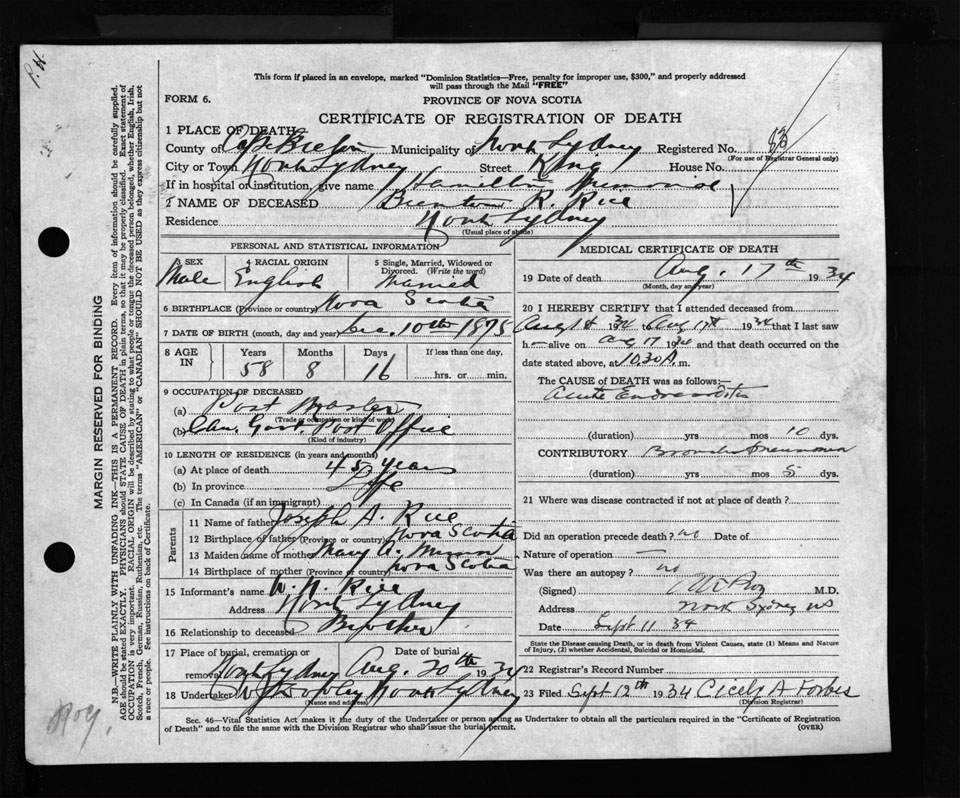 This form if placed in an envelope, marked "Dominion Statistics—Free, penalty for improper use, $300," and properly addressed
will pass through the Mail "FREE"
FORM 6.
PROVINCE OF NOVA SCOTIA
CERTIFICATE OF REGISTRATION OF DEATH
1 PLACE OF DEATH
County of Cape Breton Municipality of North Sydney Registered No. 83
(For use of Registrar General only)
City or Town North Sydney Street King House No.
If in hospital or institution, give name Hamilton Memorial
2 NAME OF DECEASED Brenton R. Rice
Residence North Sydney
(Usual place of abode)
PERSONAL AND STATISTICAL INFORMATION
3 SEX 4 RACIAL ORIGIN 5 Single, Married, Widowed or
Divorced. (Write the word)
Male English Married
6 BIRTHPLACE (Province or country) Nova Scotia
7 DATE OF BIRTH (month, day and year) Dec. 10th 1875
8 AGE IN Years Months Days If less than one day,
58 8 16 hrs. or min.
9 OCCUPATION OF DECEASED
(a) Post Master
(Trade or occupation or kind of work)
(b) Can. Govt. Post Office
(Kind of industry)
10 LENGTH OF RESIDENCE (in years and months)
(a) At place of death 45 years
(b) In province Life
(c) In Canada (if an immigrant)
Parents
11 Name of father Joseph A. Rice
12 Birthplace of father (Province or country) Nova Scotia
13 Maiden name of mother Mary A.
14 Birthplace of mother (Province or country) Nova Scotia
15 Informant's name Rice
Address North Sydney
16 Relationship to deceased Brother
17 Place of burial, cremation or Date of burial
removal North Sydney Aug. 20th 1934
18 Undertaker North Sydney
(Name and address)
MEDICAL CERTIFICATE OF DEATH
19 Date of death Aug. 17th 1934
(Month, day and year)
20 I HEREBY CERTIFY that I attended deceased from
Aug 1st 34 to Aug 17th 1934 that I last saw
h— alive on Aug 17 1934 and that death occurred on the
date stated above, at 10.30 A. m.
The CAUSE OF DEATH was as follows:—
Acute Endocarditis
(duration) yrs mos 10 dys.
CONTRIBUTORY Broncho pneumonia
(duration) yrs mos 5 dys.
21 Where was disease contracted if not at place of death?
Did an operation precede death? no Date of
Nature of operation —
Was there an autopsy? no
(Signed) M.D.
Address North Sydney NS
Date Sept 11 34
State the Disease causing Death, or in death from Violent Causes, state (1) Means and Nature
of Injury, (2) whether Accidental, Suicidal or Homicidal.
22 Registrar's Record Number
23 Filed Sept 12th 1934 Cicely A Forbes
(Division Registrar)
Sec. 46—Vital Statistics Act makes it the duty of the Undertaker or person acting as Undertaker to obtain all the particulars required in the "Certificate of Registration
of Death" and to file the same with the Division Registrar who shall issue the burial permit.
(OVER)
MARGIN RESERVED FOR BINDING
N.B.—WRITE PLAINLY WITH UNFADING INK—THIS IS A PERMANENT RECORD. Every item of information should be carefully supplied.
AGE should be stated EXACTLY. PHYSICIANS should STATE CAUSE OF DEATH in plain terms, so that it may be properly classified. Exact statement of
OCCUPATION is very important. RACIAL ORIGIN will be described by stating to what people or tongue the deceased person belonged, whether English, Irish,
Scotch, French, German, Russian, Ruthenian, etc. The terms "AMERICAN" or "CANADIAN" SHOULD NOT BE USED as they express citizenship but not
a race or people. See instructions on back of Certificate.